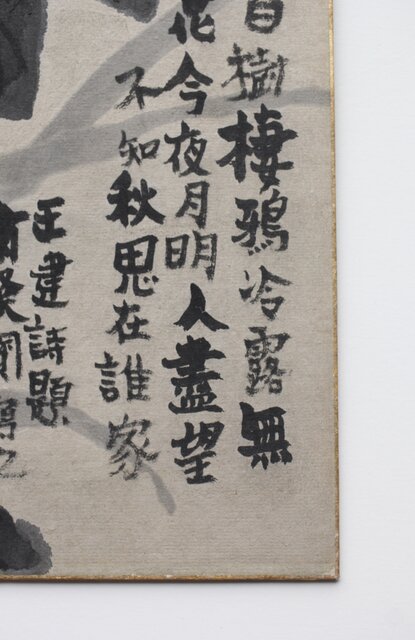 白樹棲鴉冷露無
花今夜月明人盡望
不知秋思在誰家
王建詩題
寫之